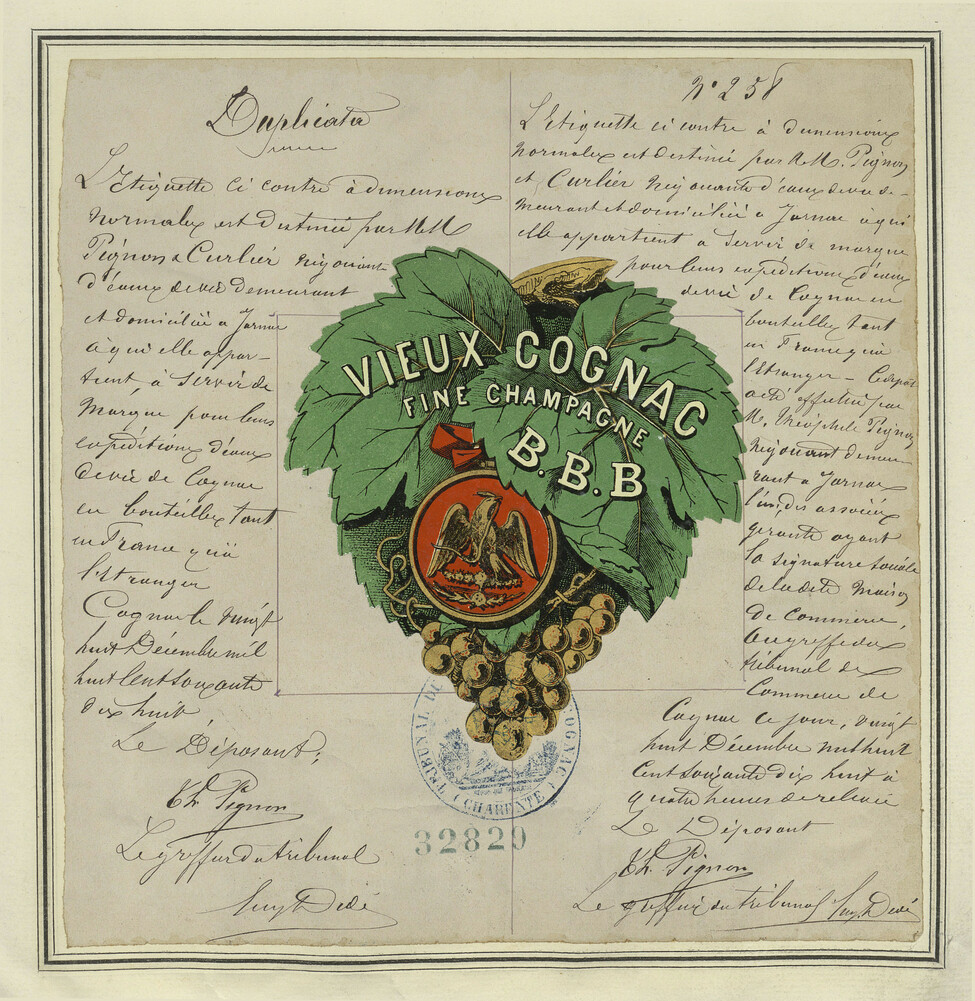 Duplicata
L'Etiquette ci contre à dimensions
normales est destinée par M.M.
Pignon & Curlier négociants
d'eaux de vie demeurant
et domiciliés a Jarnac
à qui elle appar-
tient, à servir de
marque pour leurs
expéditions d'eaux
de vie de Cognac
en bouteilles tant
en France qu'à
l'Etranger
Cognac le vingt
huit Décembre mil
huit cent soixante
dix huit
Le Déposant,
Th. Pignon
Le greffier du tribunal
N° 258
L'Etiquette ci contre à dimensions
normales est destinée par M.M. Pignon
et Curlier négociants d'eaux de vie de-
meurant et domiciliés a Jarnac à qui
elle appartient a servir de marque
pour leurs expéditions d'eaux
de vie de Cognac en
bouteilles tant
en France qu'à
l'Etranger - Ce dépot
a été effectué par
M. Théophile Pignon
négociant demeu
rant a Jarnac
l'un des associés
gérants ayant
la signature sociale
de la dite maison
de commerce,
au greffe du
tribunal de
Commerce de
Cognac ce jour, vingt
huit Décembre mil huit
cent soixante dix huit à
quatre heures de relevée
Le Déposant
Th. Pignon
Le greffier du tribunal
VIEUX COGNAC
FINE CHAMPAGNE
B.B.B
TRIBUNAL DE COGNAC
(CHARENTE)
32829